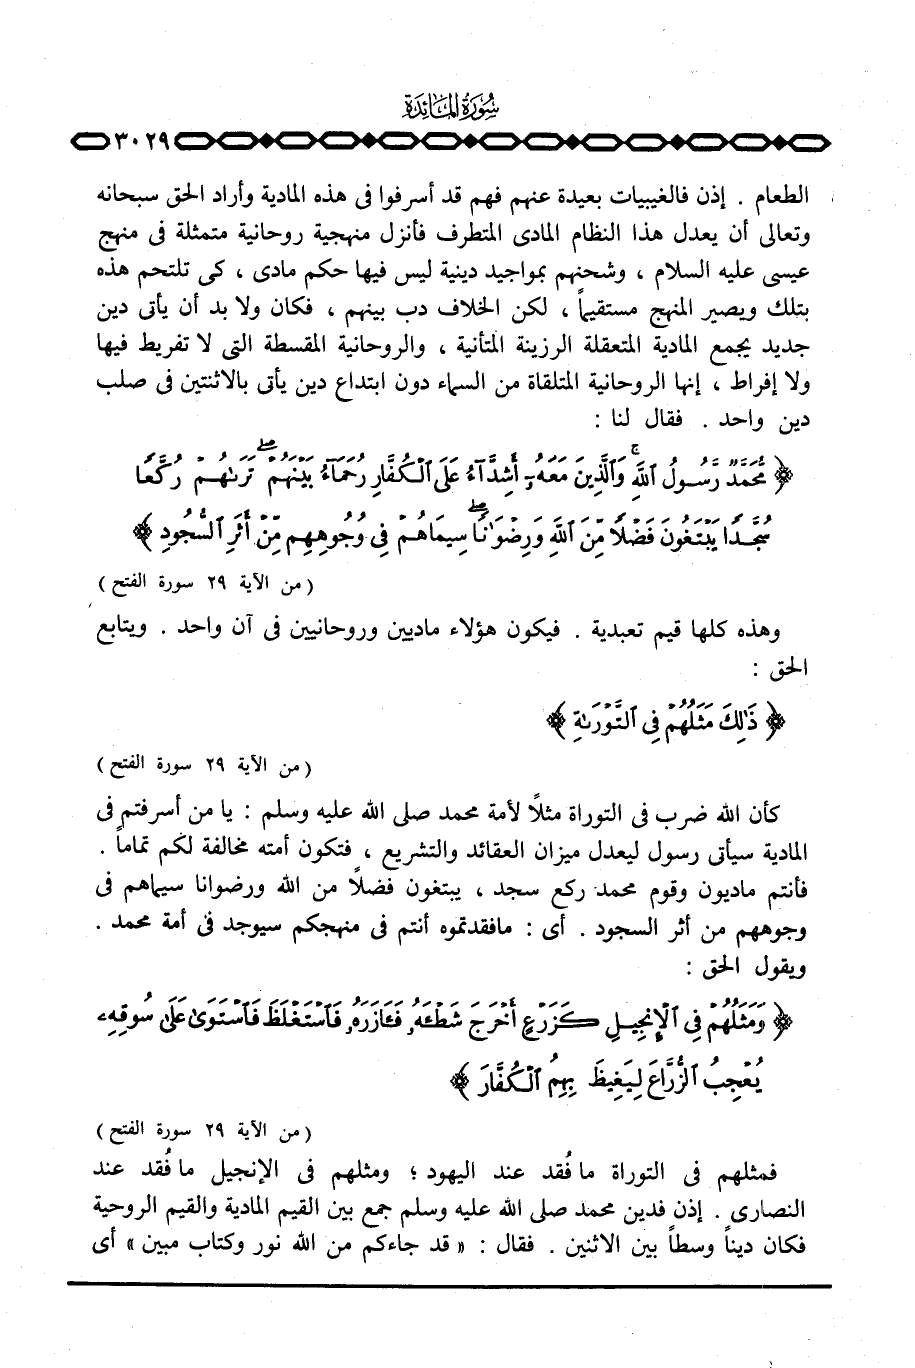 سُورَةُ المَائِدَة
٣٠٢٩
الطعام . إذن فالغيبيات بعيدة عنهم فهم قد أسرفوا فى هذه المادية وأراد الحق سبحانه
وتعالى أن يعدل هذا النظام المادى المتطرف فأنزل منهجية روحانية متمثلة فى منهج
عيسى عليه السلام ، وشحنهم بمواجيد دينية ليس فيها حكم مادى ، كى تلتحم هذه
بتلك ويصير المنهج مستقيماً ، لكن الخلاف دب بينهم ، فكان ولا بد أن يأتى دين
جديد يجمع المادية المتعقلة الرزينة المتأنية ، والروحانية المقسطة التى لا تفريط فيها
ولا إفراط ، إنها الروحانية المتلقاة من السماء دون ابتداع دين يأتى بالاثنتين فى صلب
دين واحد . فقال لنا :
﴿ مُّحَمَّدٌ رَّسُولُ ٱللَّهِ ۚ وَٱلَّذِينَ مَعَهُۥٓ أَشِدَّآءُ عَلَى ٱلْكُفَّارِ رُحَمَآءُ بَيْنَهُمْ ۖ تَرَىٰهُمْ رُكَّعًا
سُجَّدًا يَبْتَغُونَ فَضْلًا مِّنَ ٱللَّهِ وَرِضْوَٰنًا ۖ سِيمَاهُمْ فِى وُجُوهِهِم مِّنْ أَثَرِ ٱلسُّجُودِ ﴾
( من الآية ٢٩ سورة الفتح )
وهذه كلها قيم تعبدية . فيكون هؤلاء ماديين وروحانيين فى آن واحد . ويتابع
الحق :
﴿ ذَٰلِكَ مَثَلُهُمْ فِى ٱلتَّوْرَىٰةِ ﴾
( من الآية ٢٩ سورة الفتح )
كأن الله ضرب فى التوراة مثلاً لأمة محمد صلى الله عليه وسلم : يا من أسرفتم فى
المادية سيأتى رسول ليعدل ميزان العقائد والتشريع ، فتكون أمته مخالفة لكم تماماً .
فأنتم ماديون وقوم محمد ركع سجد ، يبتغون فضلاً من الله ورضوانا سيماهم فى
وجوههم من أثر السجود . أى : مافقدتموه أنتم فى منهجكم سيوجد فى أمة محمد .
ويقول الحق :
﴿ وَمَثَلُهُمْ فِى ٱلْإِنجِيلِ كَزَرْعٍ أَخْرَجَ شَطْـَٔهُۥ فَـَٔازَرَهُۥ فَٱسْتَغْلَظَ فَٱسْتَوَىٰ عَلَىٰ سُوقِهِۦ
يُعْجِبُ ٱلزُّرَّاعَ لِيَغِيظَ بِهِمُ ٱلْكُفَّارَ ﴾
( من الآية ٢٩ سورة الفتح )
فمثلهم فى التوراة ما فُقد عند اليهود ؛ ومثلهم فى الإنجيل ما فُقد عند
النصارى . إذن فدين محمد صلى الله عليه وسلم جمع بين القيم المادية والقيم الروحية
فكان ديناً وسطاً بين الاثنين . فقال : « قد جاءكم من الله نور وكتاب مبين » أى